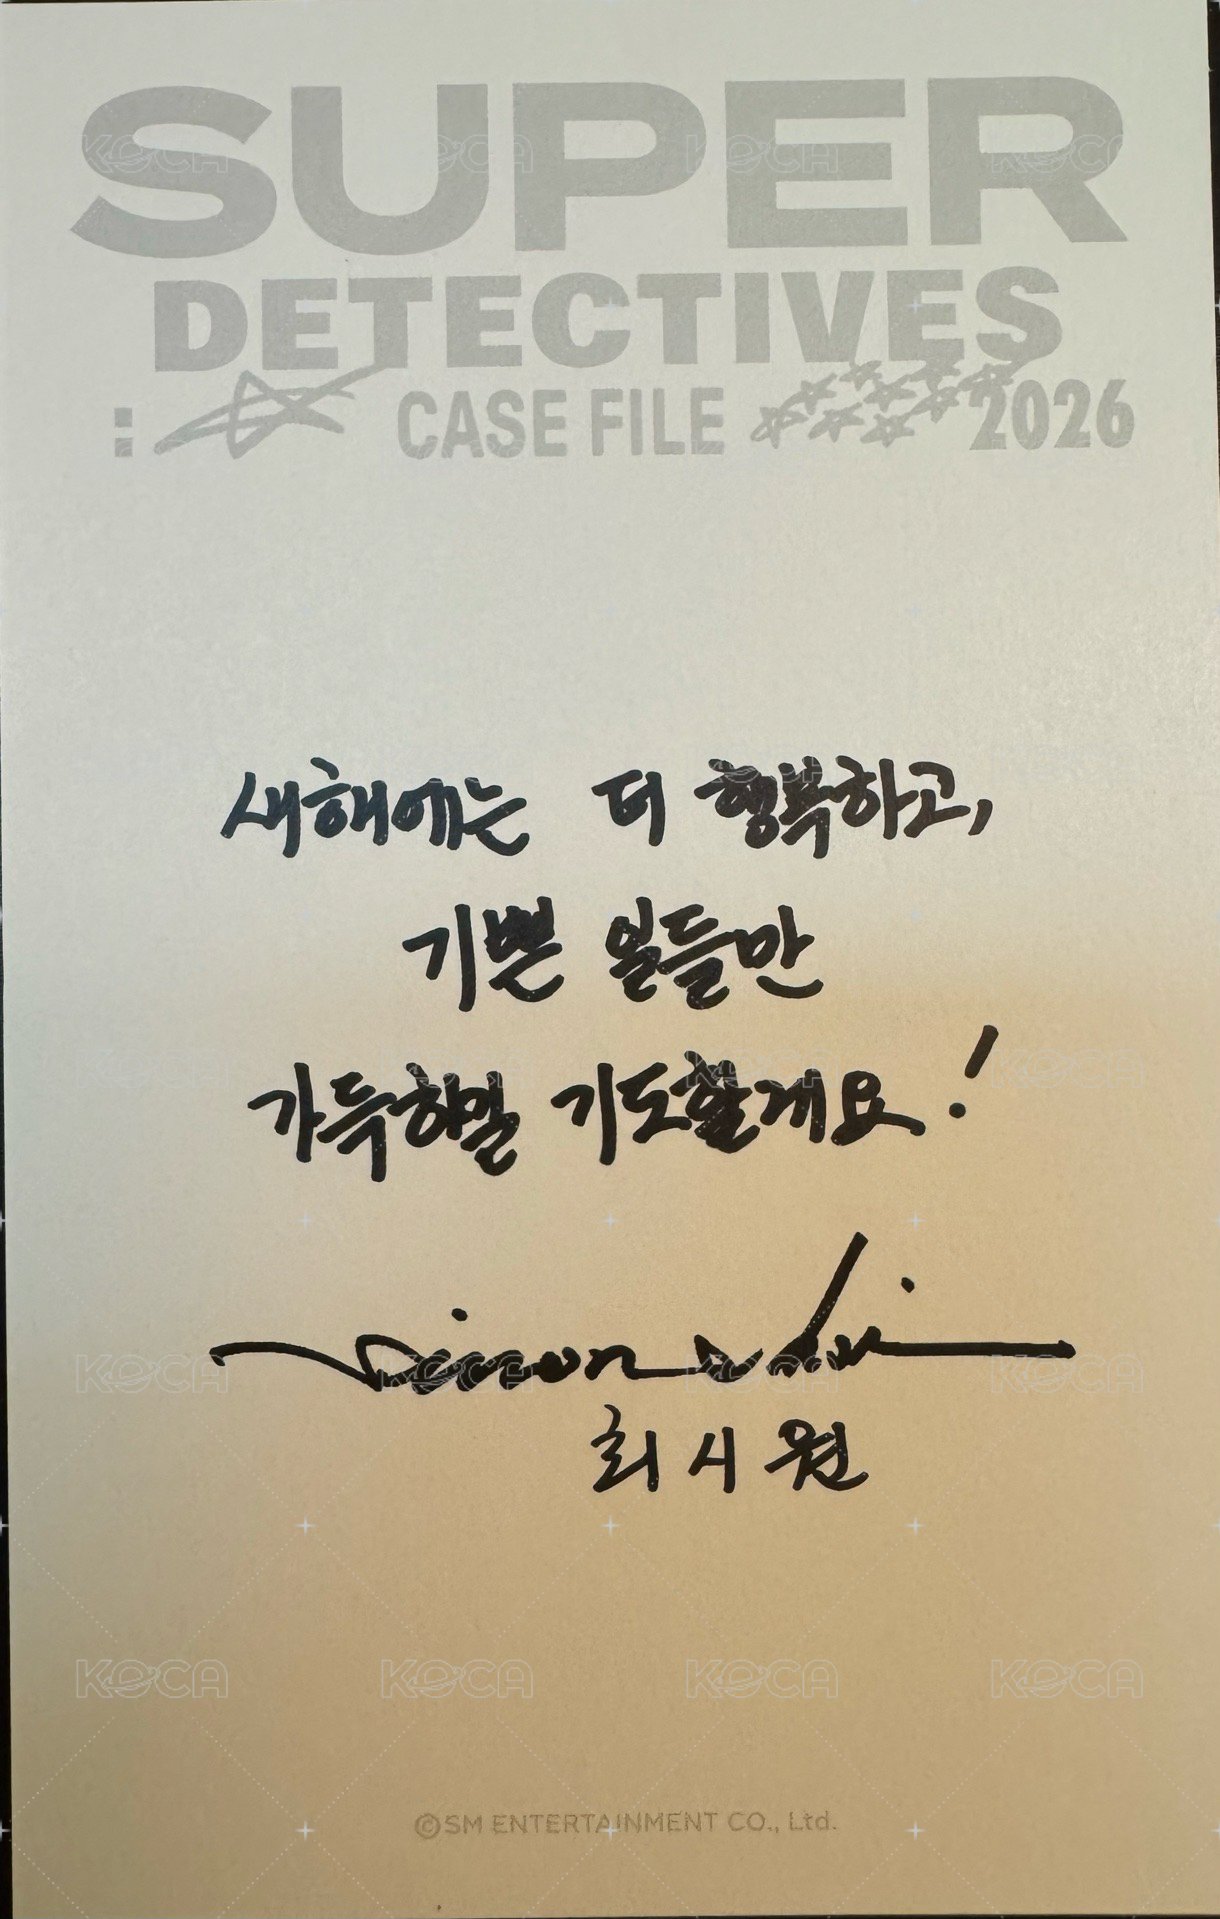 SUPER
DETECTIVES
: CASE FILE 2026
새해에는 더 행복하고,
기쁜 일들만
가득하길 기도할게요!
siwon choi
최시원
KOCA KOCA KOCA KOCA
©SM ENTERTAINMENT CO., Ltd.